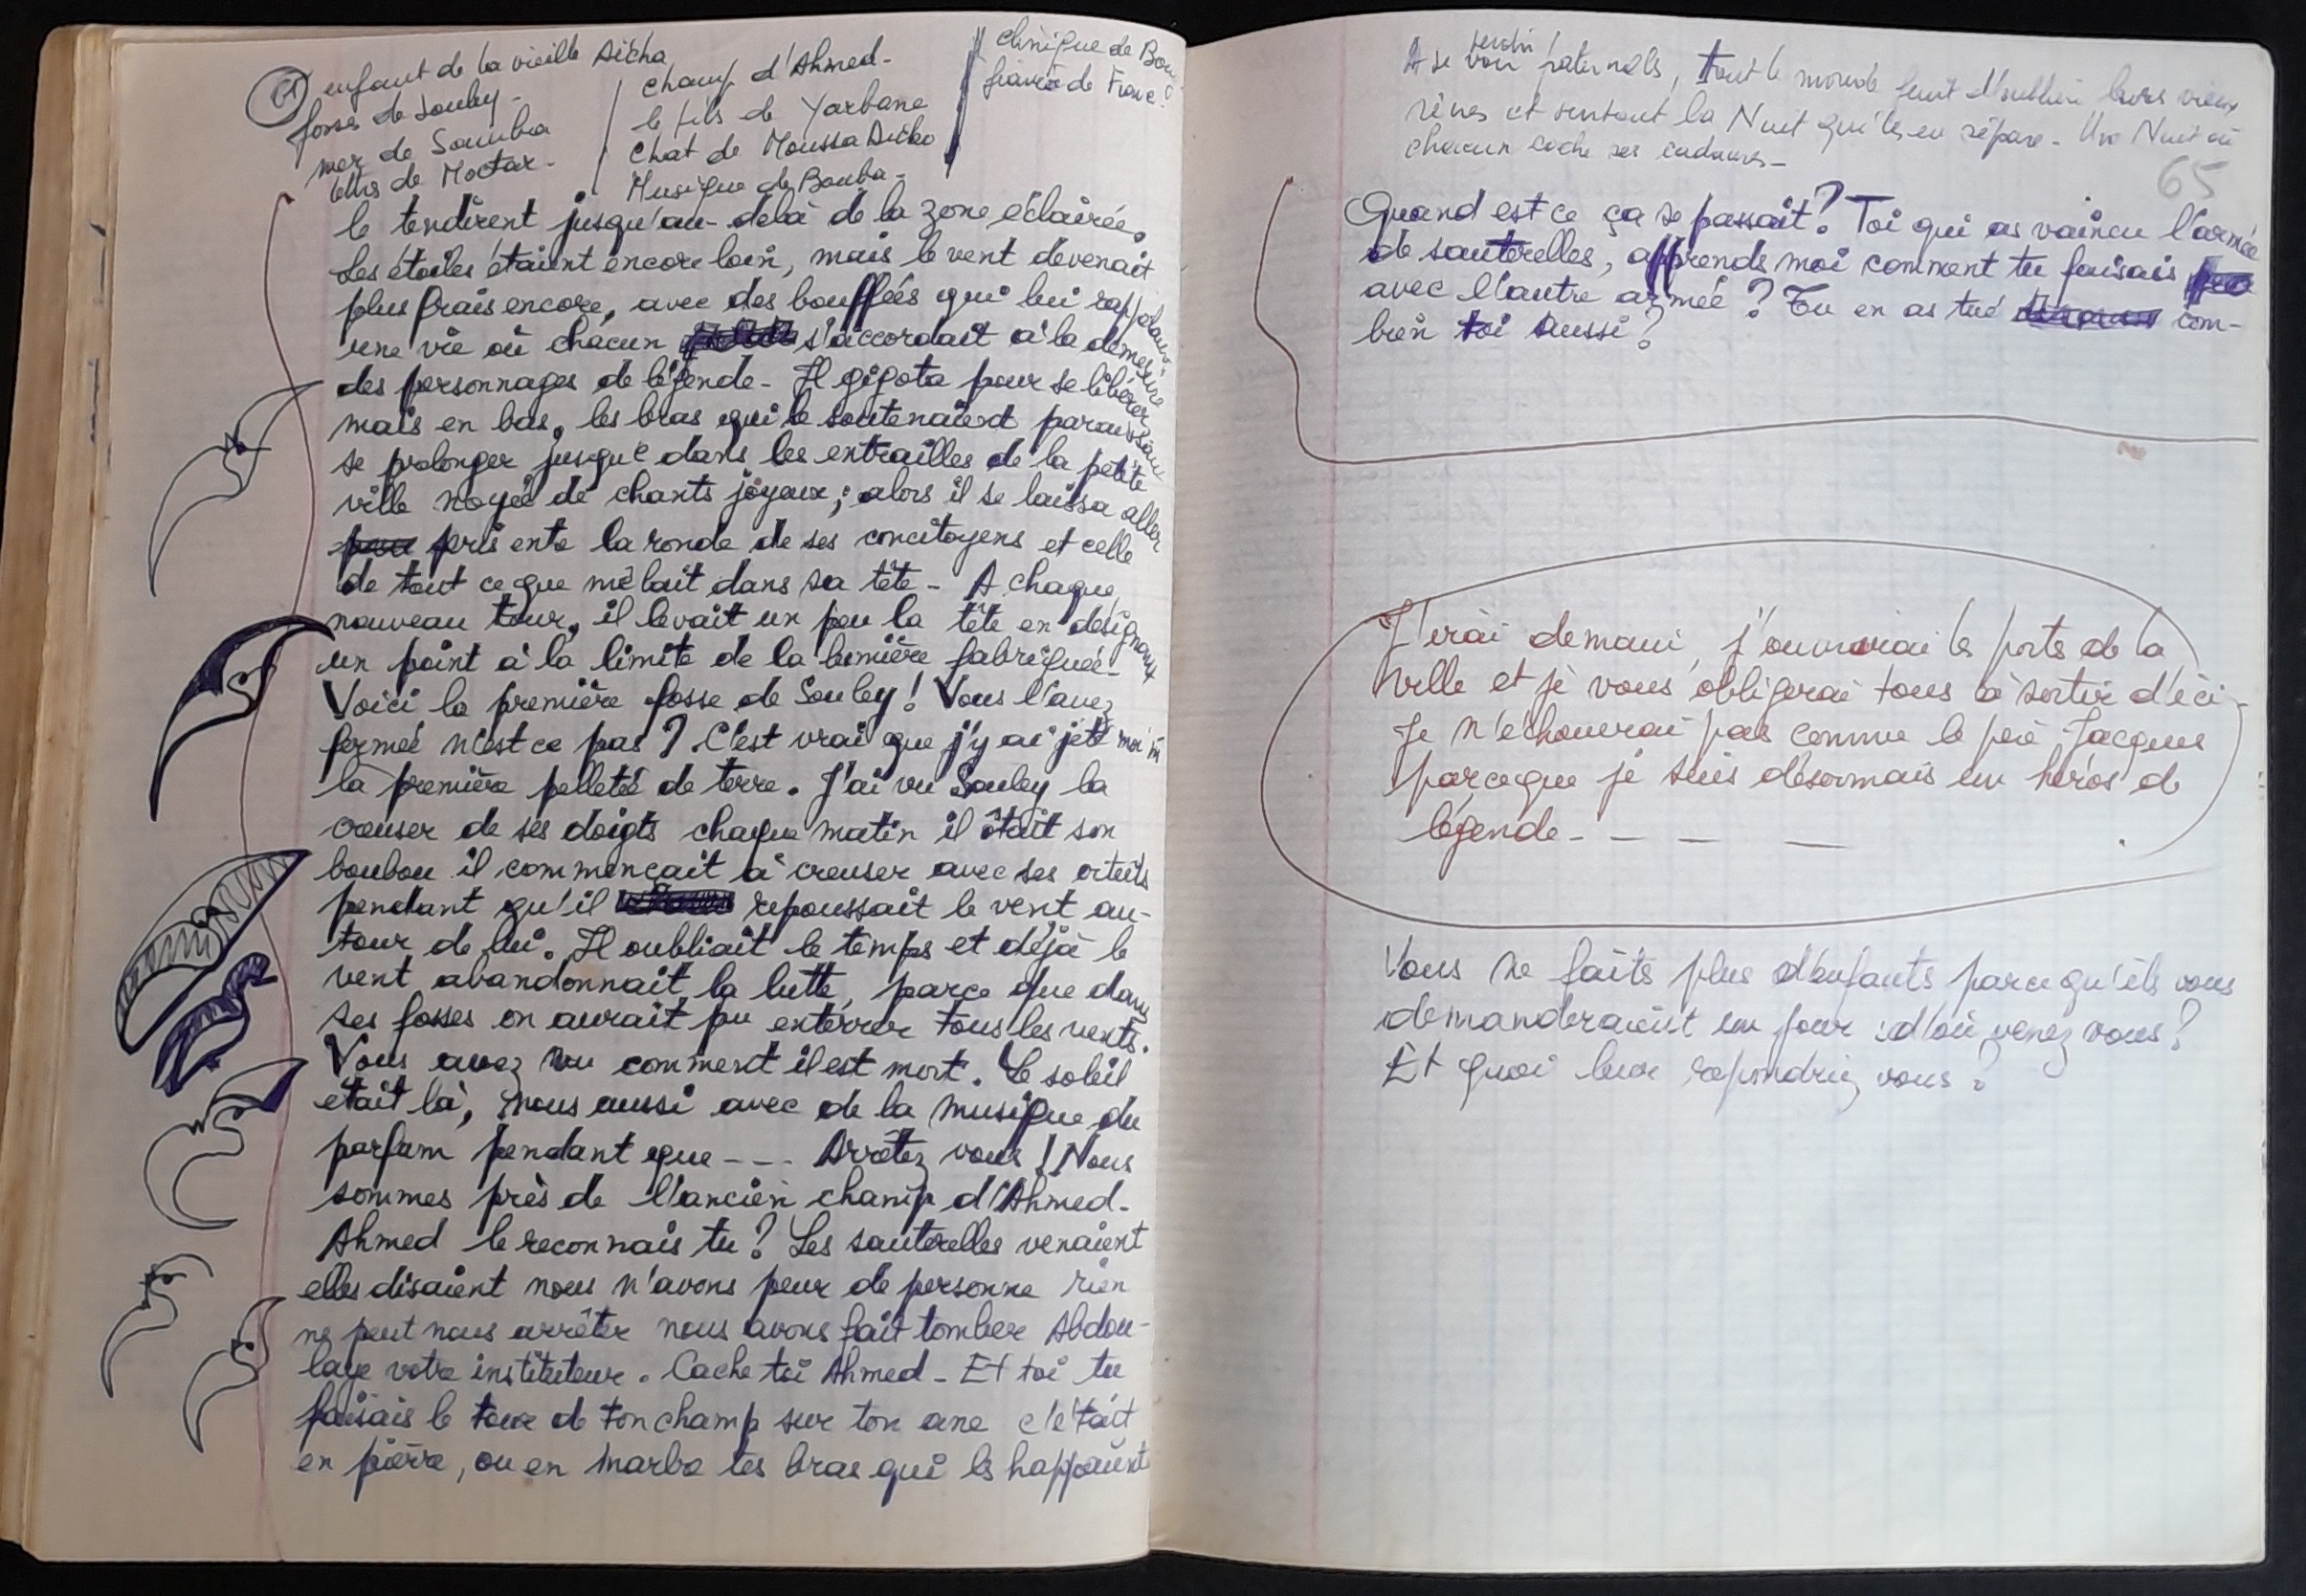 enfant de la vieille Aïcha
fosses de Souley -
mer de Samba
béliers de Moctar -
Champ d'Ahmed -
le fils de Yarbane
Chat de Moussa Dicko
Musique de Bouba -
clinique de
de France
le tendirent jusqu'au-delà de la zone éclairée.
Les étoiles étaient encore loin, mais le vent devenait
plus frais encore, avec des bouffées qui lui rappelaient
une vie où chacun s'accordait à la démesure
des personnages de légende - Il gigota pour se libérer
mais en bas, les bras qui le soutenaient paraissaient
se prolonger jusque dans les entrailles de la petite
ville noyée de chants joyeux ; alors il se laissa aller
pris ente la ronde de ses concitoyens et celle
de tout ce que mêlait dans sa tête - A chaque
nouveau tour, il levait un peu la tête en désignant
un point à la limite de la lumière fabriquée -
Voici la première fosse de Souley ! Vous l'avez
fermée n'est ce pas ? C'est vrai que j'y ai jeté moi m
la première pelletée de terre. J'ai vu Souley la
creuser de ses doigts chaque matin il ôtait son
boubou il commençait à creuser avec ses orteils
pendant qu'il repoussait le vent au-
tour de lui. Il oubliait le temps et déjà le
vent abandonnait la lutte, parce que dans
ses fosses on aurait pu enterrer tous les vents.
Vous avez vu comment il est mort. Le soleil
était là, nous aussi avec de la musique du
parfum pendant que - - - Arrêtez vous ! Nous
sommes près de l'ancien champ d'Ahmed -
Ahmed le reconnais tu ? Les sauterelles venaient
elles disaient nous n'avons peur de personne rien
ne peut nous arrêter nous avons fait tomber Abdou-
laye votre instituteur. Cache toi Ahmed - Et toi tu
faisais le tour de ton champ sur ton ane c'était
en pierre, ou en marbre tes bras qui les happaient
paternels, tout le monde leurs vieux
rêves et surtout la Nuit qui les en sépare - Une Nuit où
chacun cache ses cadavres -
65
Quand est ce ça se passait ? Toi qui as vaincu l'armée
de sauterelles, apprends moi comment tu faisais
avec l'autre armée ? Tu en as tué com-
bien toi aussi ?
J'irai demain, j'ouvrirai les portes de la
Ville et je vous obligerai tous à sortir d'ici -
Je n'échouerai pas comme le père Jacques
parceque je suis désormais un héros de
légende - - - -
Vous ne faites plus d'enfants parcequ'ils vous
demanderaient un jour : d'où venez vous ?
Et quoi leur repondriez vous ?